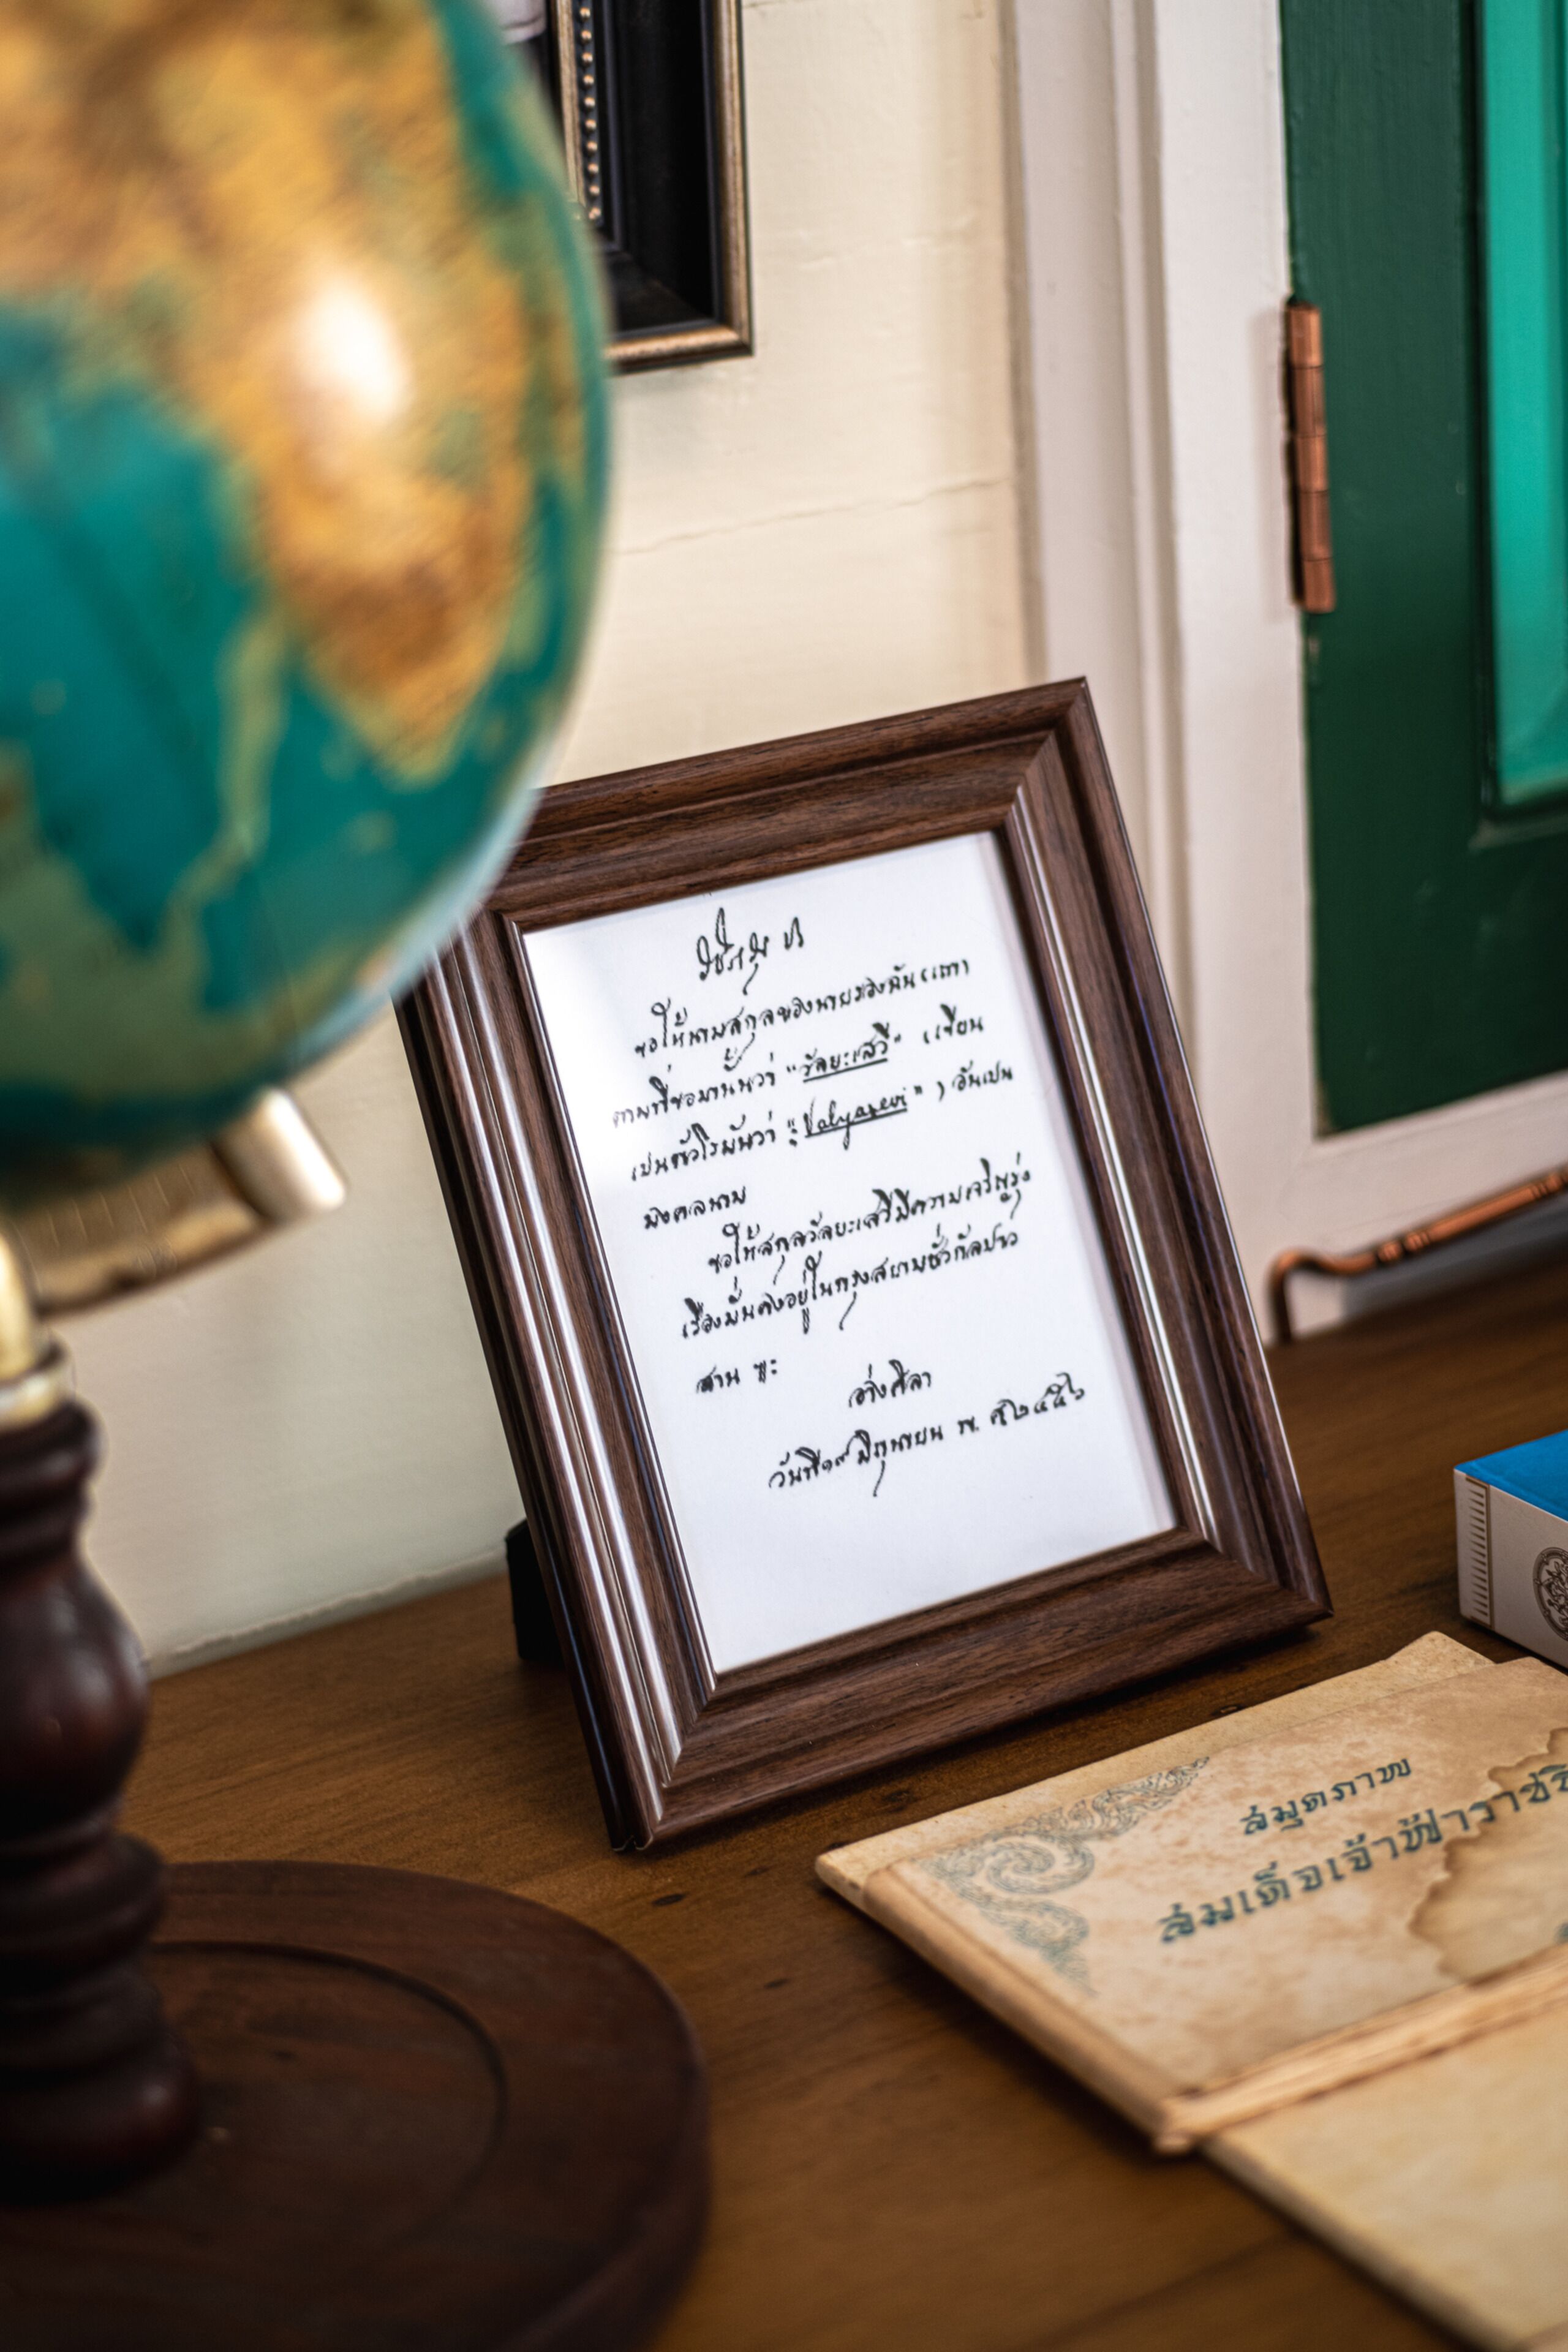 ขอให้นามสกุลของนายรองพัน (เภา
ตามที่ขอมานั้นว่า "วัลยะเสวี" (เขียน
เป็นตัวโรมันว่า "Valyasevi") อันเป็น
มงคลนาม
ขอให้สกุลวัลยะเสวีมีความเจริญรุ่ง
เรืองมั่นคงอยู่ในกรุงสยามชั่วกัลปาว
สาน ฯะ
อ่างศิลา
วันที่ ๑๙ มิถุนายน พ.ศ. ๒๔๕๖
สมุดภาพ
สมเด็จเจ้าฟ้าวาชิ